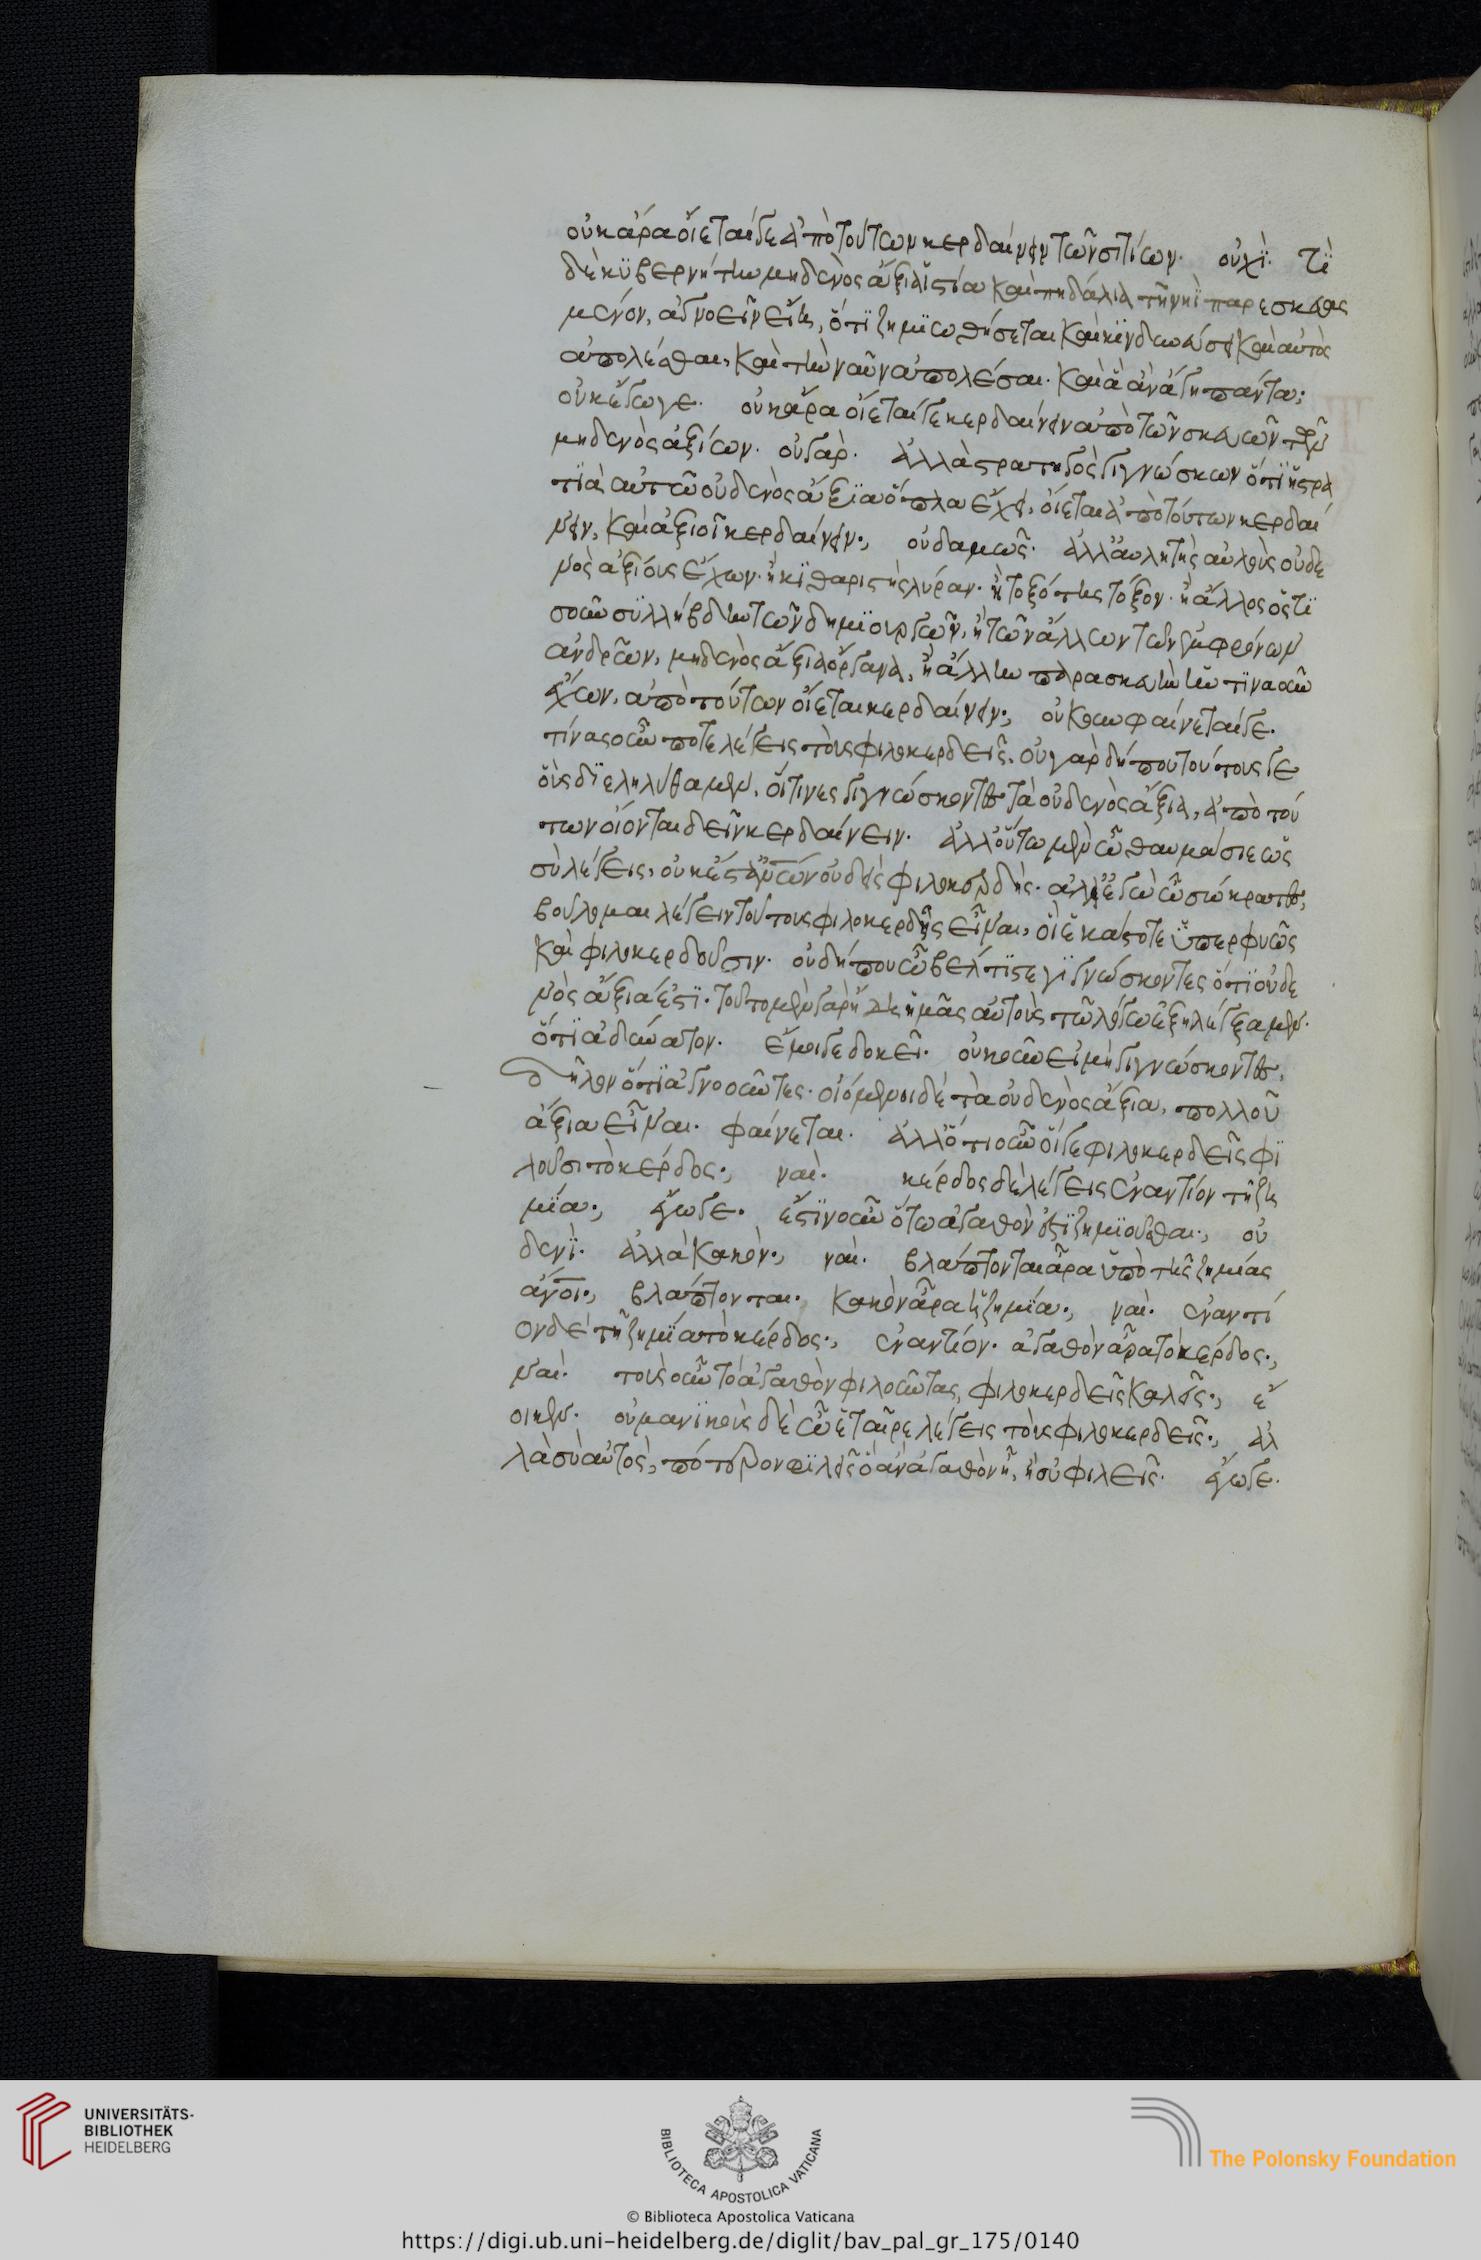 οὐκ ἄρα οἴεταί γε ἀπὸ τούτων κερδαίνειν τῶν σιτίων. οὐχὶ. τί
δὲ κυβερνήτην μηδενὸς ἄξια ἱστία καὶ πηδάλια τῇ νηῒ παρεσκευας
μένον, ἀγνοεῖν εἴης, ὅτι ζημιωθήσεται καὶ κινδυνεύσει καὶ αὐτὸς
ἀπολέσθαι, καὶ τὴν ναῦν ἀπολέσαι. καὶ ἃ ἂν ἄγῃ πάντα;
οὐκ ἔγωγε. οὐκ ἄρα οἴεταί γε κερδαίνειν ἀπὸ τῶν σκευῶν τῶν
μηδενὸς ἀξίων. οὐ γάρ. ἀλλὰ στρατηγὸς γιγνώσκων ὅτι ἡ στρα
τιὰ αὐτῶ οὐδενὸς ἄξια ὅπλα ἔχει, οἴεται ἀπὸ τούτων κερδαί
νειν, καὶ ἀξιοῖ κερδαίνειν; οὐδαμῶς. ἀλλ' αὐλητὴς αὐλοὺς οὐδε
νὸς ἀξίους ἔχων. ἢ κιθαριστὴς λύραν. ἢ τοξότης τόξον. ἢ ἄλλος ὅστι
σοῦν συλλήβδην τῶν δημιουργῶν, ἢ τῶν ἄλλων τῶν ἐμφρόνων
ἀνδρῶν, μηδενὸς ἄξια ὄργανα, ἢ ἄλλην παρασκευὴν ἥν τινα οῦν
ἔχων, ἀπὸ τούτων οἴεται κερδαίνειν; οὔκουν φαίνεταί γε.
τίνας οὖν ποτε λέγεις τοὺς φιλοκερδεῖς. οὐ γὰρ δήπου τούτους γε
οὓς διεληλύθαμεν, οἵτινες γιγνώσκοντες τὰ οὐδενὸς ἄξια, ἀπὸ τού
των οἴονται δεῖν κερδαίνειν. ἀλλ' οὕτω μὲν ὦ θαυμάσιε ὡς
σὺ λέγεις, οὐκ ἔστ' αὐτῶν οὐδεὶς φιλοκερδής. ἀλλ' ἐγὼ ὦ σώκρατες,
βούλομαι λέγειν τούτους φιλοκερδεῖς εἶναι, οἳ ἑκάστοτε ὑπερφυῶς
καὶ φιλοκερδοῦσιν. οὐ δήπου ὦ βέλτιστε γιγνώσκοντες ὅτι οὐδε
νὸς ἄξιά ἐστι. τοῦτο μὲν γὰρ ἤδη ἡμᾶς αὐτοὺς τῶ λόγω ἐξηλέγξαμεν.
ὅτι ἀδύνατον. ἔμοιγε δοκεῖ. οὐκοῦν εἰ μὴ γιγνώσκοντες,
δῆλον ὅτι ἀγνοοῦντες. οἰόμενοι δὲ τὰ οὐδενὸς ἄξια, πολλοῦ
ἄξια εἶναι. φαίνεται. ἄλλό τι οὖν οἵγε φιλοκερδεῖς φι
λοῦσι τὸ κέρδος; ναί. κέρδος δὲ λέγεις ἐναντίον τῇ ζη
μία; ἔγωγε. ἔστιν οὖν ὅτω ἀγαθόν ἐστι ζημιοῦσθαι; οὐ
δενί. ἀλλὰ κακόν; ναί. βλάπτονται ἄρα ὑπὸ τῆς ζημίας
ἄνοι; βλάπτονται. κακὸν ἄρα ἡ ζημία; ναί. ἐναντί
ον δὲ τῇ ζημία τὸ κέρδος; ἐναντίον. ἀγαθὸν ἄρα τὸ κέρδος;
ναί. τοὺς οὖν τὸ ἀγαθὸν φιλοῦντας, φιλοκερδεῖς καλεῖς; ἔ
οικεν. οὐ μανικοὺς δὲ ὦ ἑταῖρε λέγεις τοὺς φιλοκερδεῖς; ἀλ
λὰ σὺ αὐτὸς, πότερον φιλεῖς ὃ ἂν ἀγαθὸν ἦ, ἢ οὐ φιλεῖς. ἔγωγε.
UNIVERSITÄTS-
BIBLIOTHEK
HEIDELBERG
BIBLIOTECA APOSTOLICA VATICANA
The Polonsky Foundation
© Biblioteca Apostolica Vaticana
https://digi.ub.uni-heidelberg.de/diglit/bav_pal_gr_175/0140